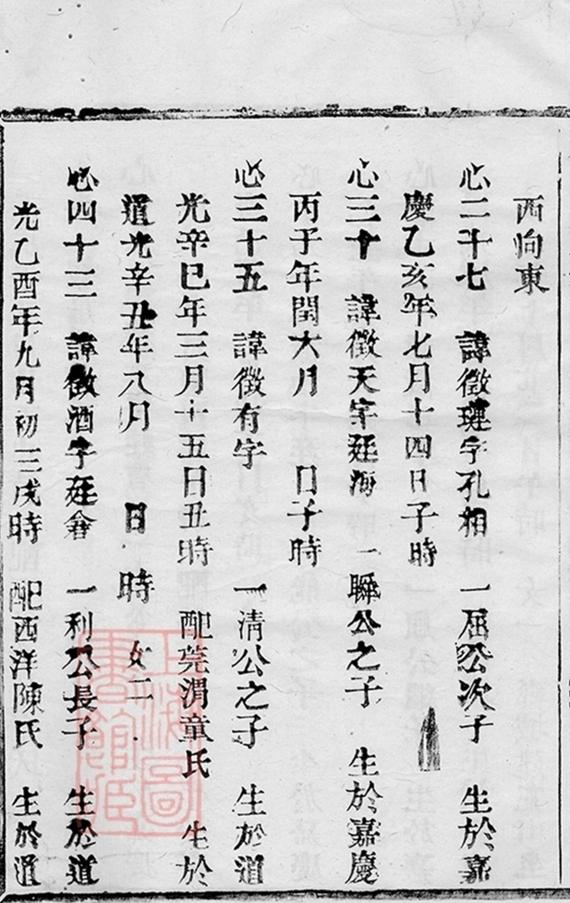 西向東
心二十七 諱徵璉字孔相 一屈公次子 生於嘉
慶乙亥年七月十四日子時
心三十 諱徵天字廷海 一聯公之子 生於嘉慶
丙子年閏六月 日子時
心三十五 諱徵有字 一清公之子 生於道
光辛巳年三月十五日丑時 配莞渭童氏 生於
道光辛丑年八月 日 時 女二
心四十三 諱徵酒字廷會 一利公長子 生於道
光乙酉年九月初三戌時 配西洋陳氏 生於道